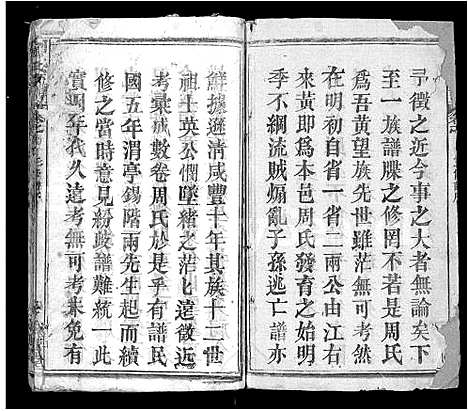 尋徵之近今事之大者無論矣下
至一族譜牒之修罔不若是周氏
爲吾黃望族先世雖茫無可考然
在明初自省一省二兩公由江右
來黃即爲本邑周氏發育之始明
季不綱流賊煽亂子孫逃亡譜亦
鮮據遜清咸豐十年其族十二世
祖士英公憫墜緒之茫乜遠徵近
考彙成數卷周氏於是乎有譜民
國五年渭亭錫階兩先生起而續
修之當時意見紛歧譜難統一此
實年代久遠考無可考未免有